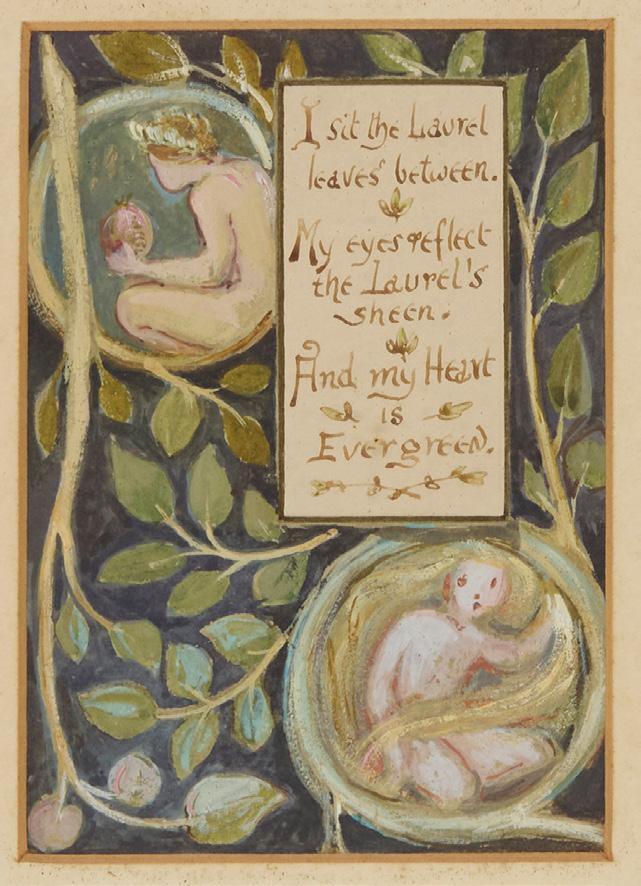 I sit the Laurel
leaves between.
My eyes reflect
the Laurel's
sheen.
And my Heart
is
Evergreen.